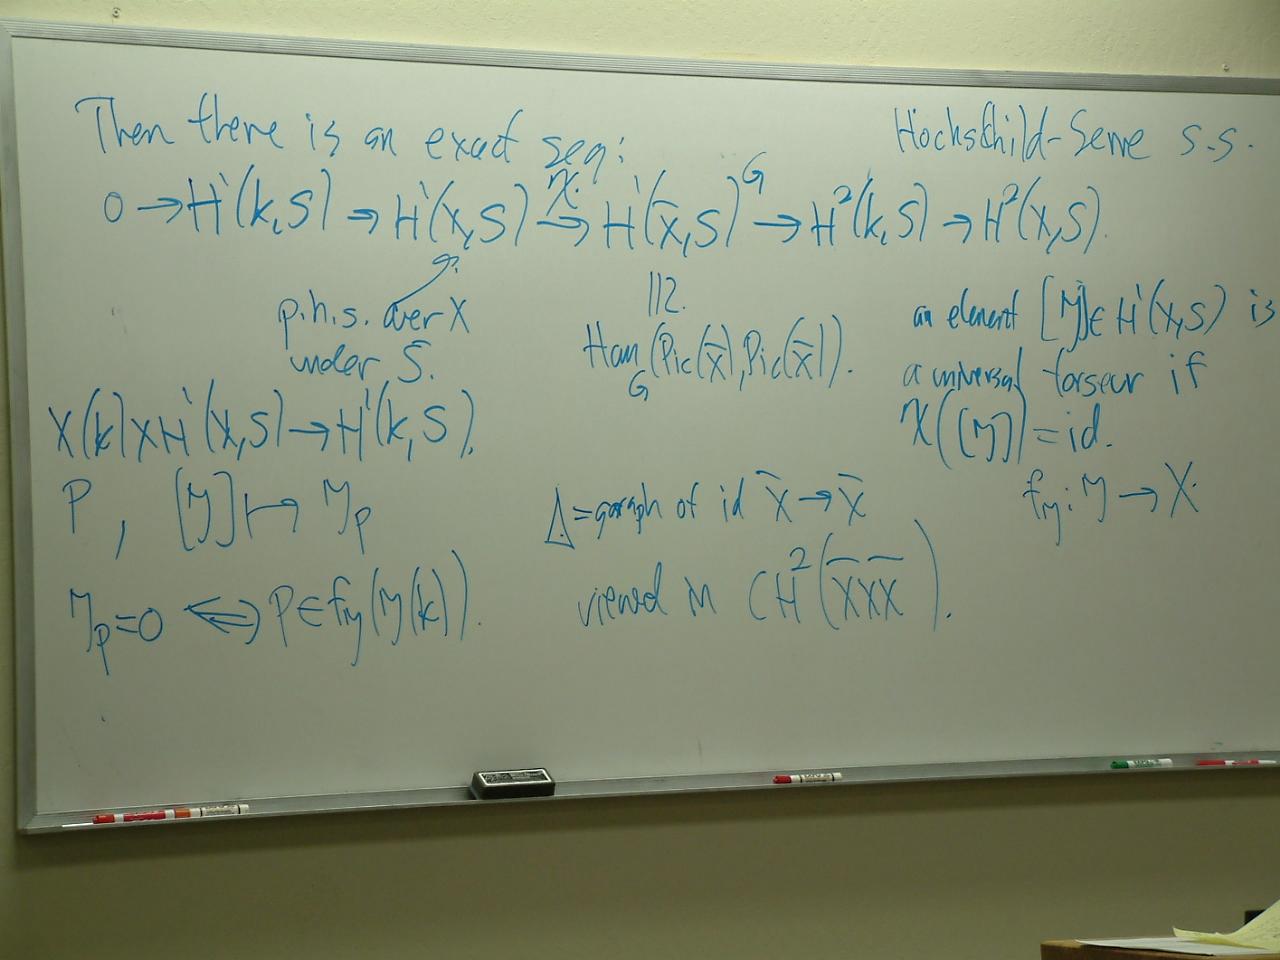 Then there is an exact seq:
Hochschild-Serre s.s.
0 → H¹(k,S) → H¹(X,S) →^χ H¹(X̄,S)^G → H²(k,S) → H²(X,S).
p.h.s. over X
under S.
112.
Hom_G(Pic(X̄),Pic(X̄)).
an element [𝒴]∈H¹(X,S) is
a universal torseur if
χ([𝒴])=id.
f_𝒴: 𝒴 → X.
X(k)×H¹(X,S) → H¹(k,S).
P, [𝒴] ↦ 𝒴_P
𝒴_P=0 ⟺ P∈f_𝒴(𝒴(k)).
Δ=graph of id X̄ → X̄
viewed in CH²(X̄×X̄).